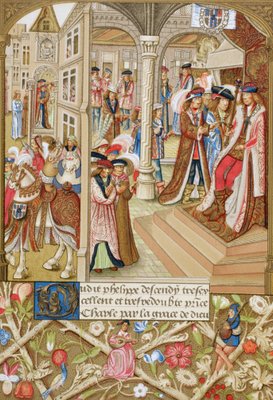 Dudit phelippe descendy tresex
cellent et tresredoubte prince
Charles par la grace de dieu